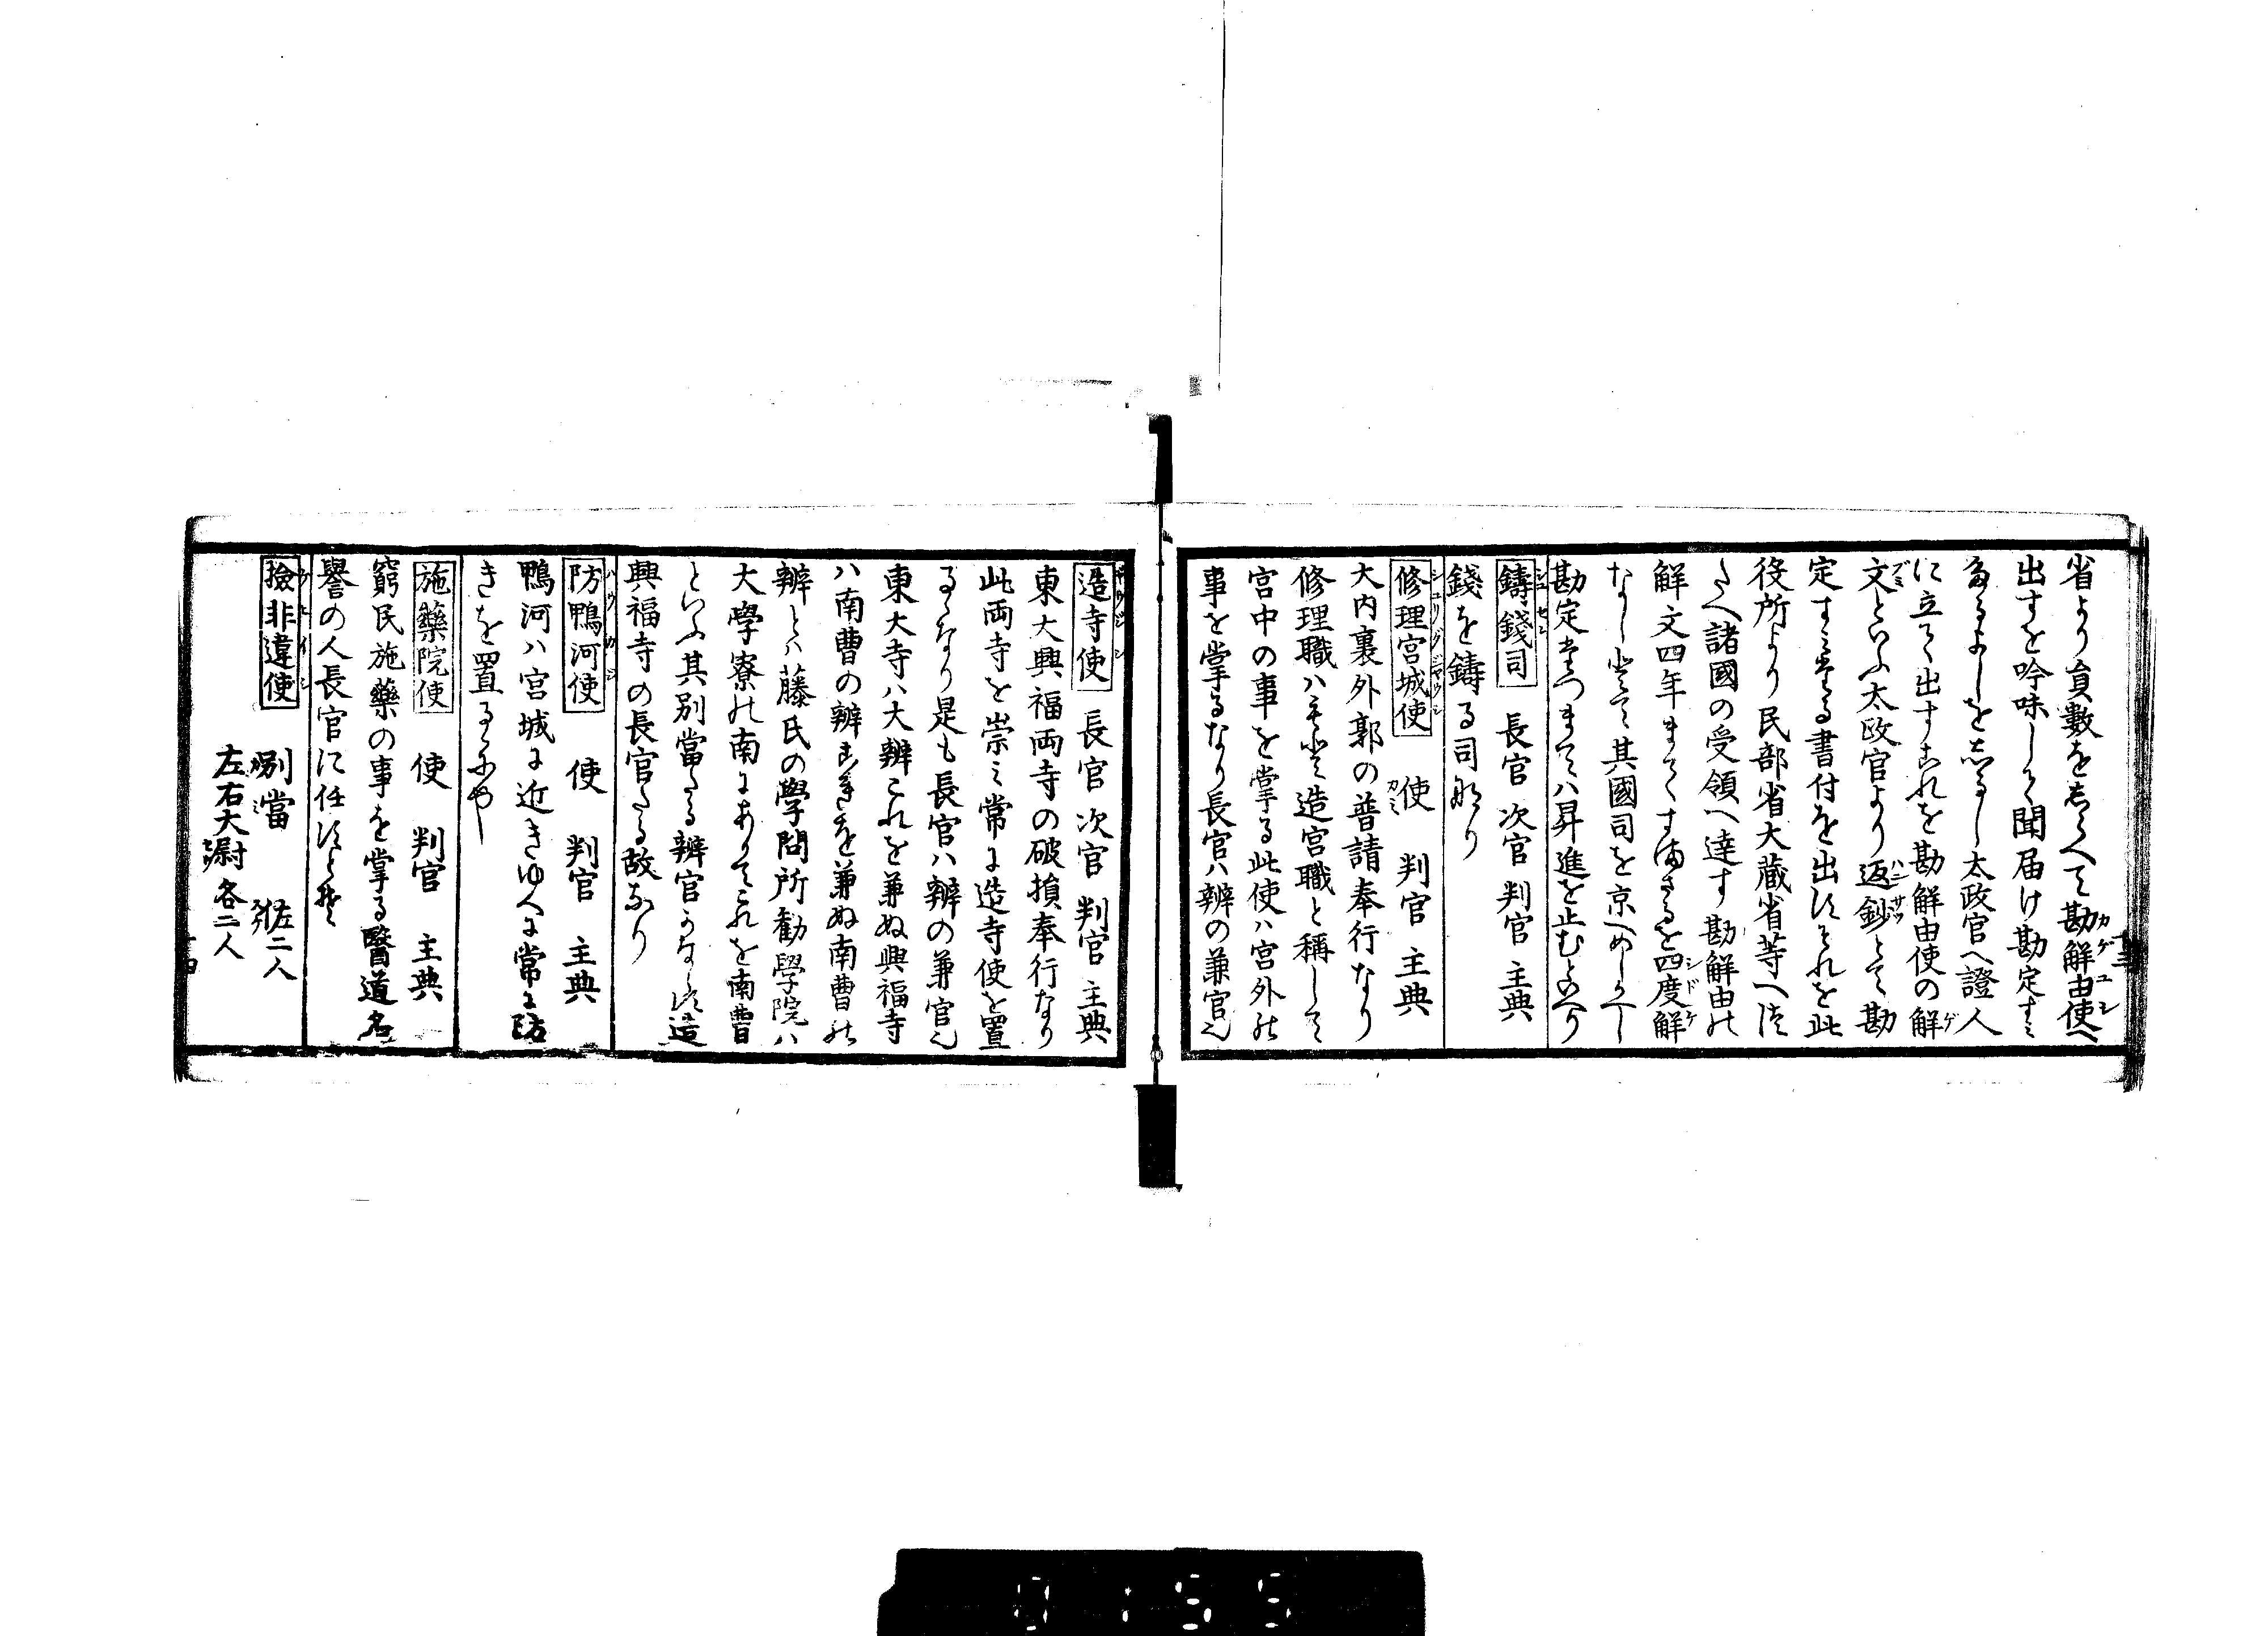 省より員數をしらへて勘解由使へ
出すを吟味して聞届け勘定すミ
たるよしをしるし太政官へ證人
に立て出すこれを勘解由使の解
文といふ太政官より返鈔とて勘
定すミたる書付を出すそれを此
役所より民部省大藏省等へつ
たへ諸國の受領へ達す勘解由の
解文四年まてすまさるを四度解
なしとて其國司を京へめしかへし
勘定たつまてハ昇進を止むと也
鑄錢司 長官 次官 判官 主典
錢を鑄る司なり
修理宮城使 使 判官 主典
大内裏外郭の普請奉行なり
修理職ハもと造宮職と稱して
宮中の事を掌る此使ハ宮外の
事を掌るなり長官ハ辨の兼官也
造寺使 長官 次官 判官 主典
東大興福両寺の破損奉行なり
此両寺を崇ミ常に造寺使を置
るゝなり是も長官ハ辨の兼官也
東大寺ハ大辨これを兼ぬ興福寺
ハ南曹の辨これを兼ぬ南曹の
辨とハ藤氏の學問所勸學院ハ
大學寮の南にありてこれを南曹
といふ其別當たる辨官かならす造
興福寺の長官たる故なり
防鴨河使 使 判官 主典
鴨河ハ宮城に近きゆへに常に防
きを置るゝにや
施藥院使 使 判官 主典
窮民施藥の事を掌る醫道名
譽の人長官に任すと云
撿非違使 別當 佐二人
左右大尉各二人